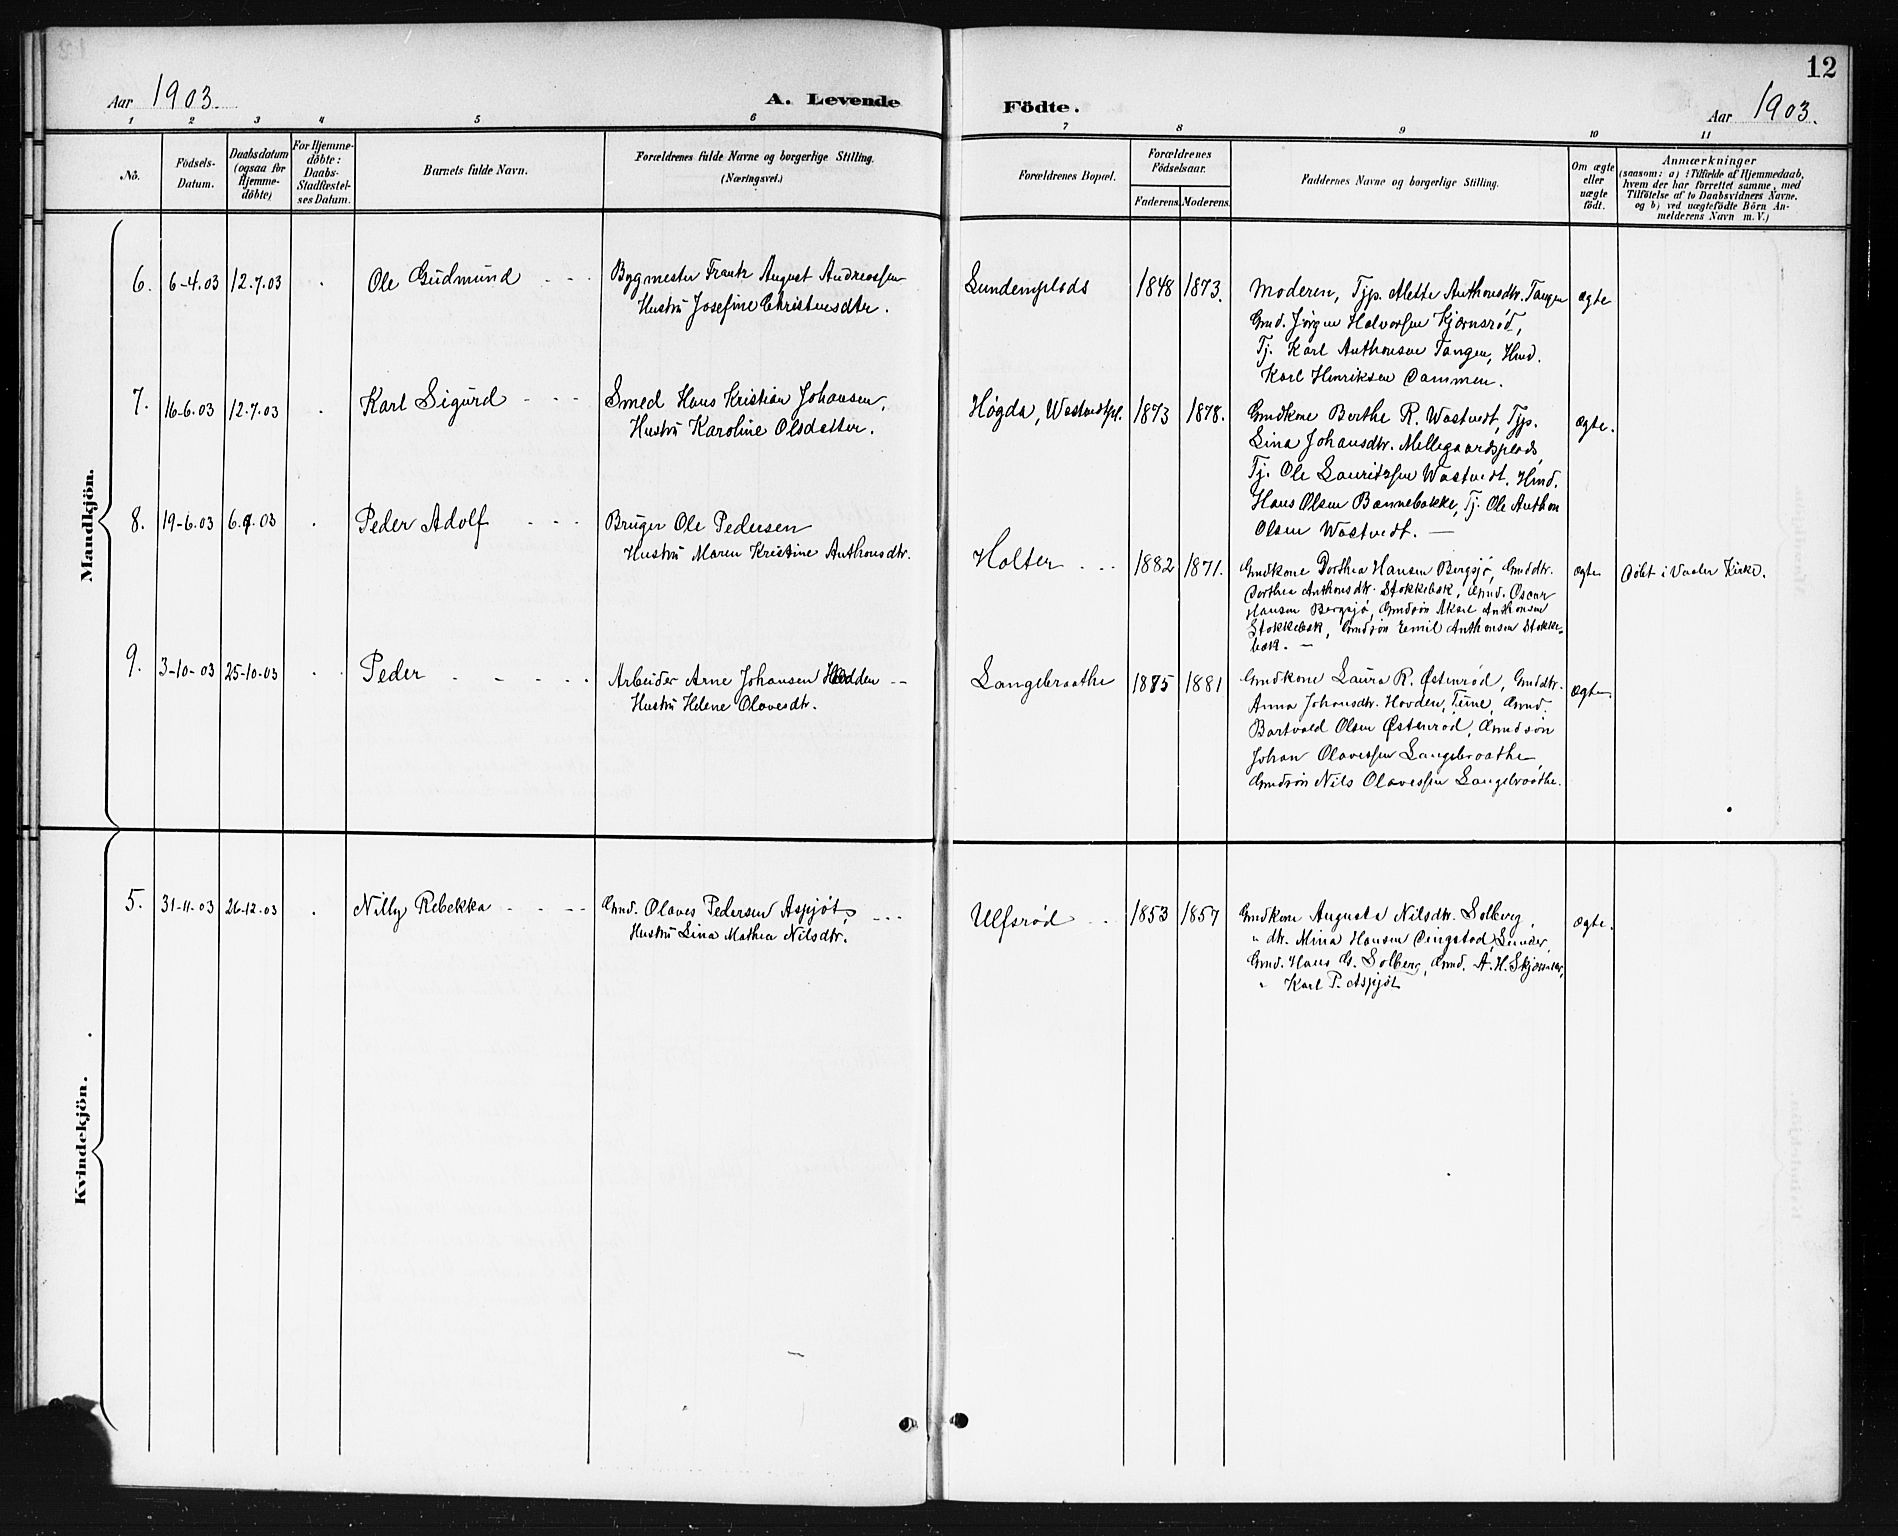 12
Aar 1903.
A. Levende
Födte.
Aar 1903.
1 2 3 4 5 6 7 8 9 10 11
No.
Födsels-
Datum.
Daabsdatum
(ogsaa for
Hjemme-
döbte)
For Hjemme-
döbte:
Daabs-
Stadfæstel-
ses Datum.
Barnets fulde Navn.
Forældrenes fulde Navne og borgerlige Stilling.
(Næringsvei.)
Forældrenes Bopæl.
Forældrenes
Födselsaar.
Faderens. Moderens.
Faddernes Navne og borgerlige Stilling.
Om ægte
eller
uægte
födt.
Anmærkninger
(saasom: a) i Tilfælde af Hjemmedaab,
hvem der har forrettet samme, med
Tilföielse af to Daabsvidners Navne.
og b) ved uægtefödte Börn An-
melderens Navn m. V.)
Mandkjön.
6. 6-4.03 12.7.03 Ole Gudmund
Bygmester Frantz August Andreassen
Hustru Josefine Christensdtr.
Lundemplads 1848 1873.
Moderen, Typ. Alette Anthonsdtr. Tangen
Gmd. Jørgen Halvorsen Kjærnsrød,
Tj. Karl Anthonsen Tangen, Hmd.
Karl Henriksen Dammen.
ægte
7. 16-6.03 12.7.03 Karl Sigurd
Smed Hans Kristian Johansen,
Hustru Karoline Olsdatter.
Høgda, Wastvedtpl. 1873 1878.
Gmdkone Berthe R. Wastvedt, Typ.
Lina Johansdtr. Mellegaardsplads,
Tj. Ole Lauritzsen Wastvedt. Hmd.
Hans Olsen Bannebakke, Tj. Ole Anthon
Olsen Wastvedt. —
ægte.
8. 19-6.03 6.9.03 Peder Adolf
Bruger Ole Pedersen
Hustru Maren Kristine Anthonsdtr.
Holter 1882 1871.
Gmdkone Dorthea Hansen Bergsjø, Gmddtr.
Dorthea Anthonsdtr. Stokkebæk, Gmd. Oscar
Hansen Bergsjø, Gmdsøn Aksel Anthonsen
Stokkebæk, Gmdsøn Emil Anthonsen Stokke-
bæk. —
ægte
Døbt i Vaaler Kirke.
9. 3-10-03 25-10-03 Peder
Arbeider Arne Johansen
Hustru Helene Olavesdtr.
Langebraathe 1875 1881
Gmdkone Laura R. Østenrød, Gmddtr.
Anna Johansdtr. Hovden, Tune, Gmd.
Bartvald Olsen Østenrød, Gmdsøn
Johan Olavessen Langebraathe,
Gmdsøn Nils Olavessen Langebraathe.
ægte.
Kvindekjön.
5. 31-11-03 26-12-03 Nilly Rebekka
Gmd. Olaves Pedersen Aspjøt,
Hustru Lina Mathea Nilsdtr.
Ulfsrød 1853 1857
Gmdkone Augusta Nilsdtr. Solberg,
" dtr. Mina Hansen Dingstad, Sunder,
Gmd. Hans G. Solberg, Gmd. A. H.
" Karl P. Aspjøt
ægte.